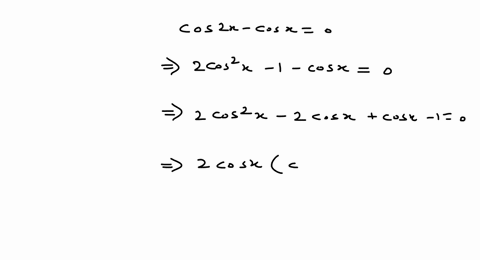 cos2x - cosx = 0
⇒ 2cos²x - 1 - cosx = 0
⇒ 2cos²x - 2cosx + cosx - 1 = 0
⇒ 2cosx (c